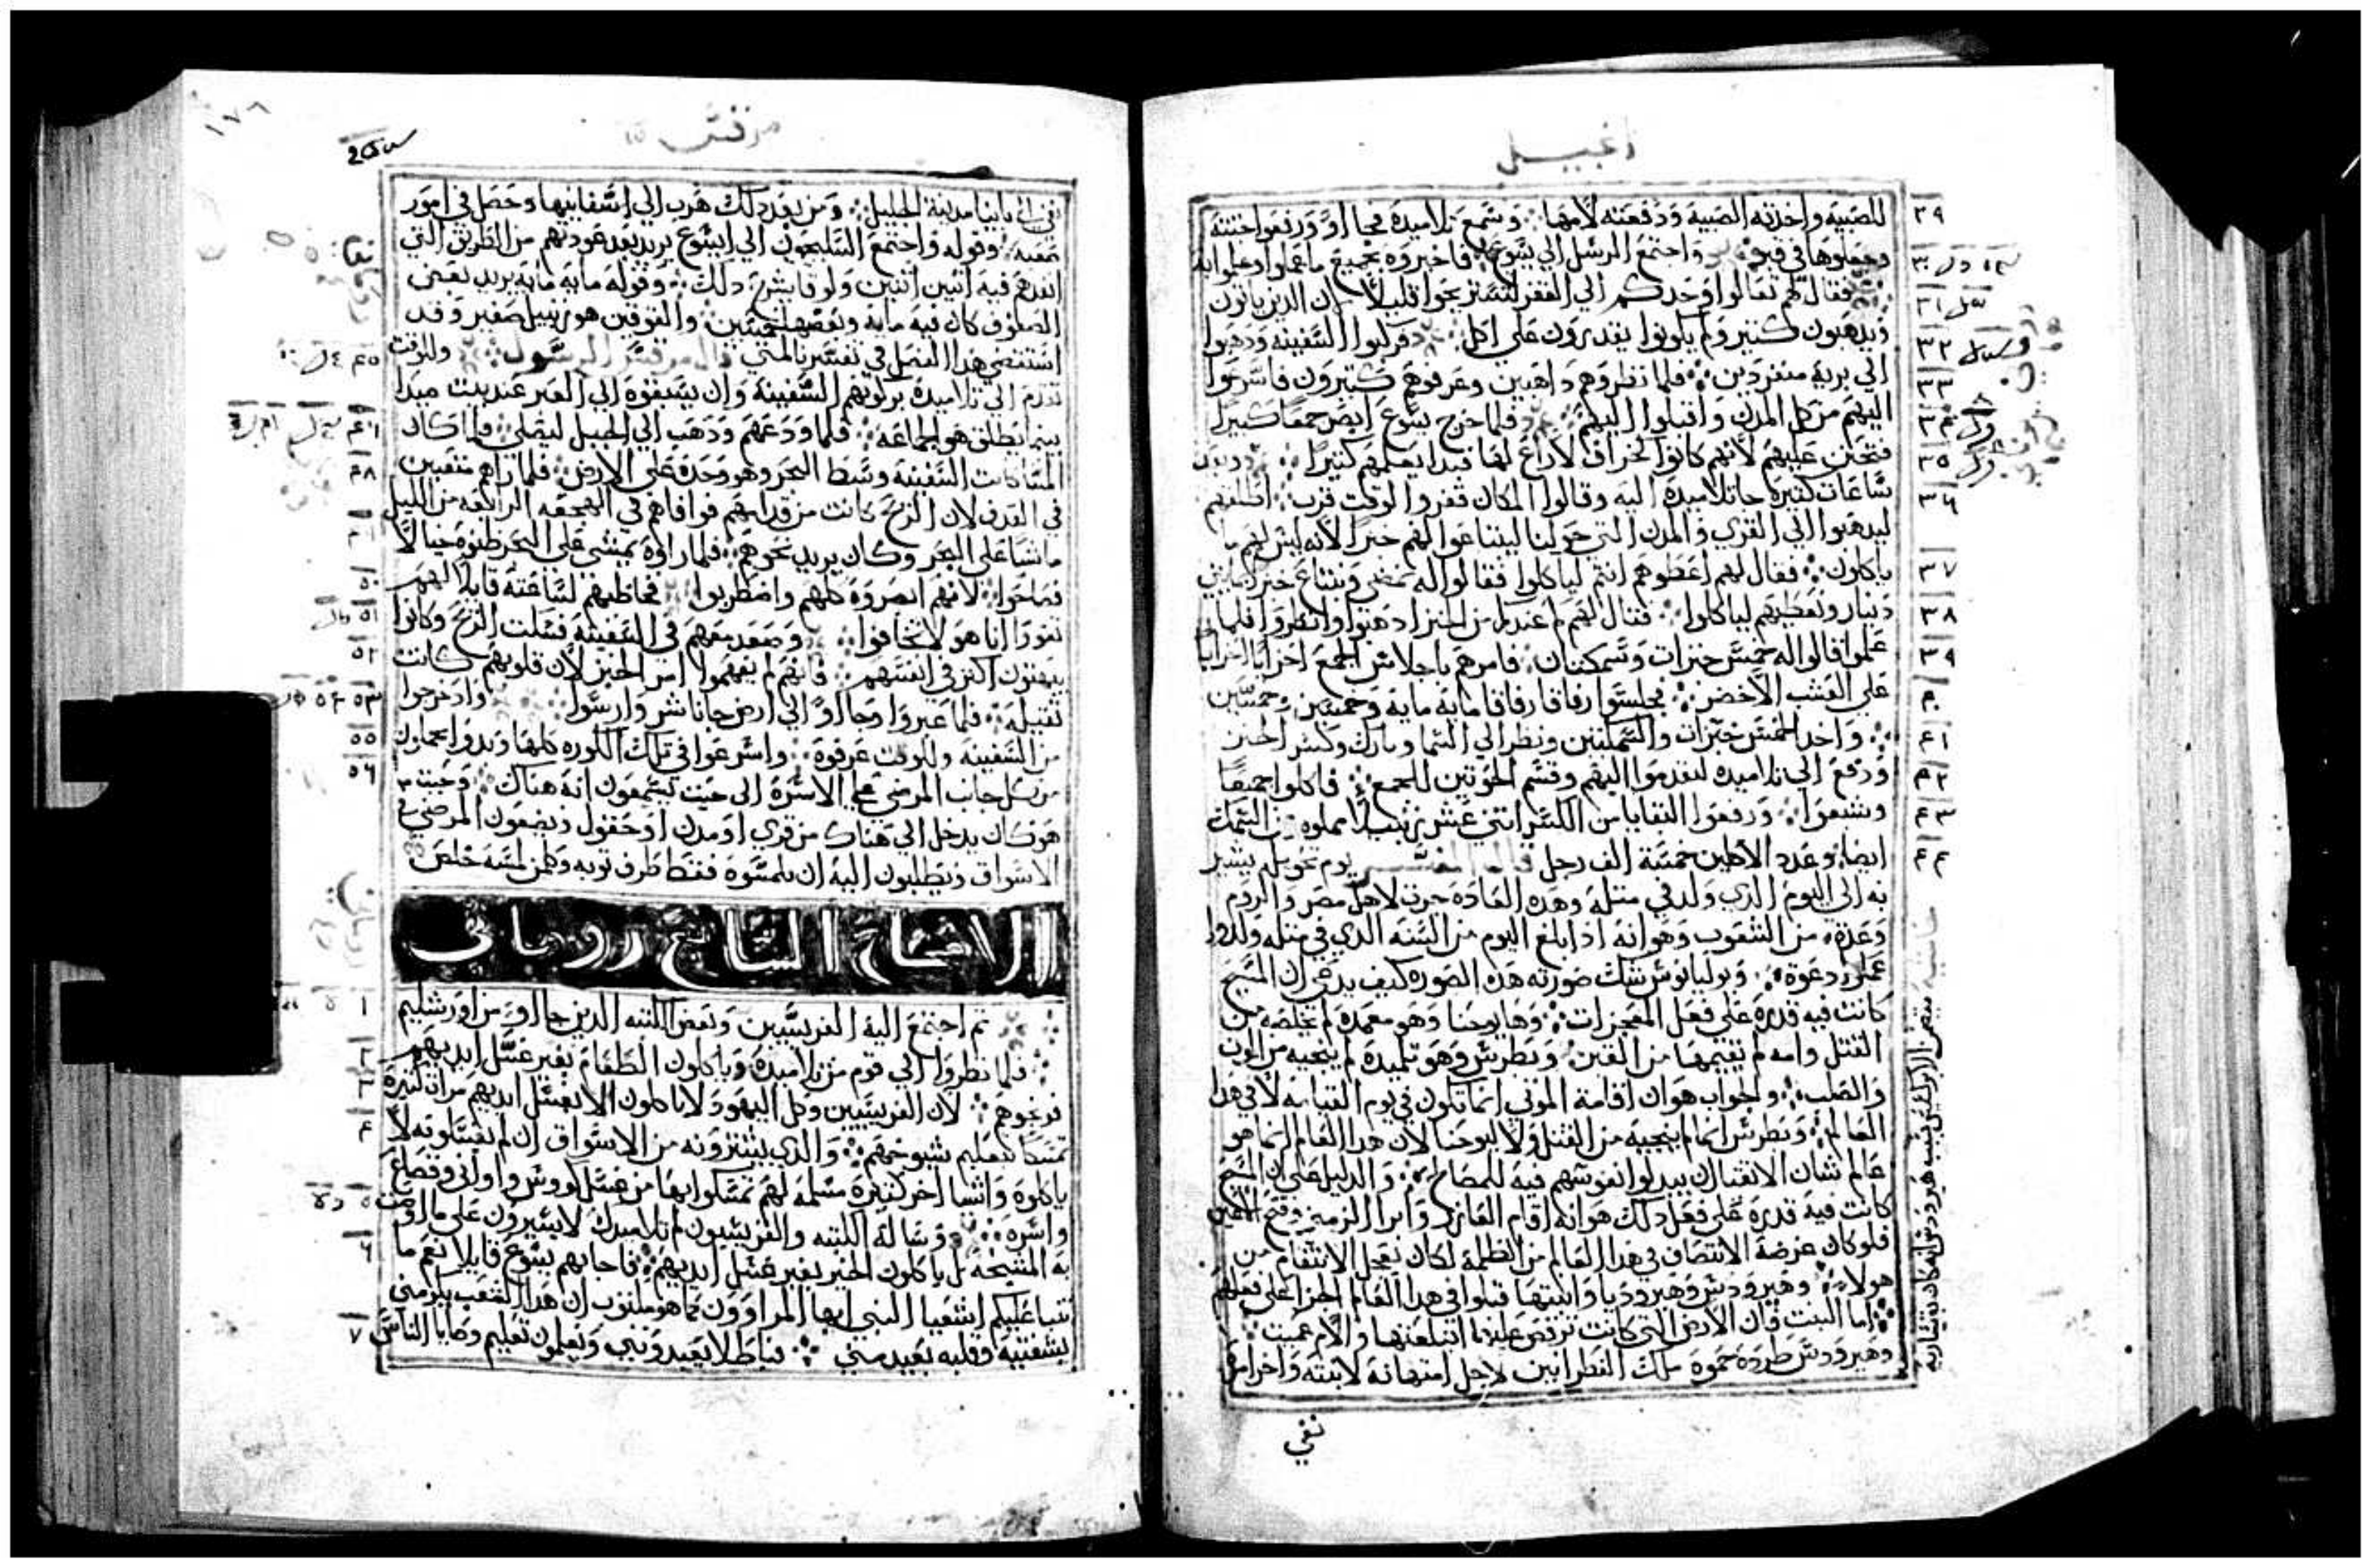 للصبيه واخدته الصبيه ودفعته لامها وسمع تلاميده فجااوا ورفعوا جتته
وجعلوها في قبر واجتمع الرسل الي يسوع فاخبروه بجميع ماعملوا وعلموا به
فقال لهم تعالوا وحدكم الي القفر لتستريحوا قليلا لان الدين ياتون
ويدهبون كتير ولم يكونوا يقدرون علي اكل فركبوا السفينه ودهبوا
الي بريه منفردين فلما نظروهم داهبين وعرفوهم كتيرون فاسرعوا
اليهم من كل المدن واقبلوا اليهم فلما خرج يسوع ابصر جمعا كبيرا
فتحنن عليهم لانهم كانوا كخراف لاراع لها فبدا يعلمهم كتيرا
ساعات كتيره جا تلاميده اليه وقالوا المكان قفر والوقت قرب اطلقهم
ليدهبوا الي القري والمدن التي حولنا ليبتاعوا لهم خبزا لانه ليس لهم ما
ياكلون فقال لهم اعطوهم انتم لياكلوا فقالوا له نمضي ونبتاع خبز بمايتي
دينار ونعطيهم لياكلوا فقال لهم كم عندكم من الخبز ادهبوا وانظروا فلما
علموا قالوا له خمس خبزات وسمكتان فامرهم باجلاس الجمع احزابا احزابا
علي العشب الاخضر فجلسوا رفاقا رفاقا مايه مايه وخمسين وخمسين
واخد الخمس خبزات والسمكتين ونظر الي السما وبارك وكسر الخبز
ودفع الي تلاميده ليقدموا اليهم وقسم الحوتين للجمع فاكلوا جميعا
وشبعوا ورفعوا البقايا من الكسر اتني عشر زنبيلا مملوه من السمك
ايضا وعدد الاكلين خمسة الف رجل قال المفسر يوم مولد يشير
به الي اليوم الدي ولد في متله وهده العاده جرت لاهل مصر والروم
وعده من الشعوب وهو انه ادا بلغ اليوم من السنه الدي في متله ولدوا
عملوا دعوة ويوليانوس شك صورته هده الصوره كيف يدعي ان المسيح
كانت فيه قدره علي فعل المعجزات وها يوحنا وهو معمده لم يخلصه من
القتل وامه لم يقيمها من القبر وبطرس وهو تلميده لم ينجيه من الموت
والصلب والجواب هو ان اقامة الموتي انما تكون في يوم القيامه لا في هدا
العالم وبطرس انما لم ينجيه من القتل ولا ليوحنا لان هدا العالم انما هو
عالم شان الانفس ان يبدلوا نفوسهم فيه للمصالح والدليل علي ان المسيح
كانت فيه قدرة علي فعل دلك هو انه اقام العازر وابرا الزمني وفتح اعين
فلو كان غرضه الانتصاف في هدا العالم من الظلمه لكان يعجل الانتقام من
هولا وهيرودس وهيروديا وابنتها قبلوا في هدا العالم الجزا علي فعلهم
اما البنت فان الارض التي كانت ترقص عليها ابتلعتها والام عميت
وهيرودس طرده حموه ملك لاجل امتهانه لابنته واخرا
نفي
مرقس
نفي الي مدينة الجليل ومن بعد دلك هرب الي اسفانيها وحصل في امور
صعبه وقوله واجتمع السليحون الي ايشوع يريد بعد عودتهم من الطريق التي
انفدهم فيه اتنين اتنين ولوقا يشرح دلك وقوله مايه مايه يريد بعض
الصفوف كان فيه مايه وبعضها خمسين والقوفين هو زنبيل صغير وقد
استقصي هدا الفصل في تفسير بالمتي قال مرقس الرسول وللوقت
تقدم الي تلاميده بركوبهم السفينه وان يسبقوه الي العبر عند بيت صيدا
بينما يطلق هو الجماعه فلما ودعهم ودهب الي الجبل ليصلي فلما كان
المسا كانت السفينه وسط البحر وهو وحده علي الارض فلما راهم متعبين
في القدف لان الريح كانت من قدامهم فوافاهم في الهجعه الرابعه من الليل
ماشيا علي البحر وكان يريد نحوهم فلما راوه يمشي علي البحر ظنوه خيالا
فصاحوا لانهم ابصروه كلهم واضطربوا فخاطبهم لساعته قايلا لهم
تقووا انا هو لا تخافوا وصعد معهم في السفينه فسكت الريح وكانوا
يبهتون اكتر في انفسهم فانهم لم يفهموا امر الخبز لان قلوبهم كانت
تقيله فلما عبروا وجااوا الي ارض جاناشر وارسوا واد خرجوا
من السفينه وللوقت عرفوه واسرعوا في تلك الكوره كلها وبدوا بحملون
من كل جانب المرضي علي الاسره الي حيت يسمعون انه هناك وحيت
هو كان يدخل الي هناك من قري او مدن او حقول ويضعون المرضي في
الاسواق ويطلبون اليه ان يلمسوه فقط طرف توبه وكلمن لمسه خلص
الاصحاح السابع روماني
تم اجتمع اليه الفريسيين وبعض الكتبه الدين جااوا من اورشليم
فلما نظروا الي قوم من تلاميده وياكلون الطعام بغير غسل ايديهم
فرغموهم لان الفريسيين وكل اليهود لا ياكلون الا بغسل ايديهم مرات كتيره
تمسكا بتعليم شيوخهم والدي يشترونه من الاسواق ان لم يغسلونه لا
ياكلوه واشيا اخر كتيره مسلمه لهم تمسكوا بها من غسل كووس واواني وقصاع
واسره وساله الكتبه والفريسيون لم تلاميدك لا يسيرون علي ما اوصت
به المشيخه بل ياكلون الخبز بغير غسل ايديهم فاجابهم يسوع قايلا نعم ما
تنبا عليكم اشعيا النبي ايها المراوون كما هو مكتوب ان هدا الشعب يكرمني
بشفتيه وقلبه بعيد مني فباطلا يعبدونني ويعلمون تعليم وصايا الناس